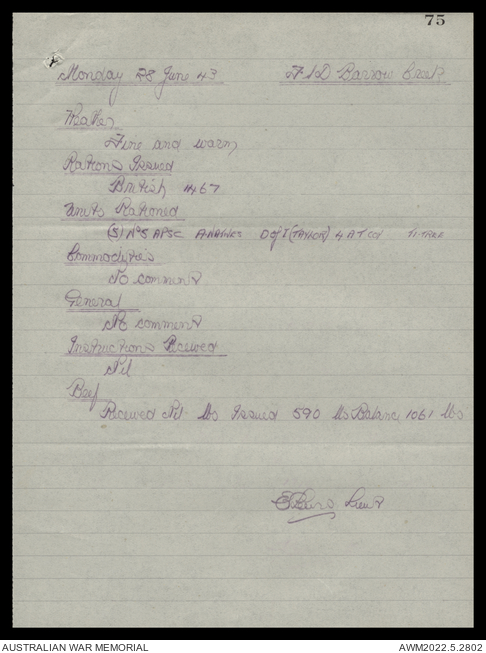 75
Monday 28 June 43 FSD Barrow Creek
Weather
Fine and warm
Rations Issued
British 1467
Units Rationed
(5) No 5 APSC D of I (TAYLOR) 4 AT Coy TI-TREE
Commodities
No comment
General
No comment
Instructions Received
Nil
Beef
Received Nil lbs Issued 590 lbs Balance 1061 lbs
Lieut
AUSTRALIAN WAR MEMORIAL AWM2022.5.2802